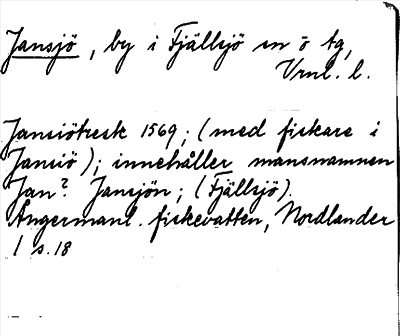 Jansjö, by i Fjällsjö sn ö Ag,
Vrnl. l.
Jansiötresk 1569; (med fiskare i
Jansiö); innehåller mansnamnen
Jan? Jansjön; (Fjällsjö).
Ångermanl. fiskevatten, Nordlander
1 s. 18